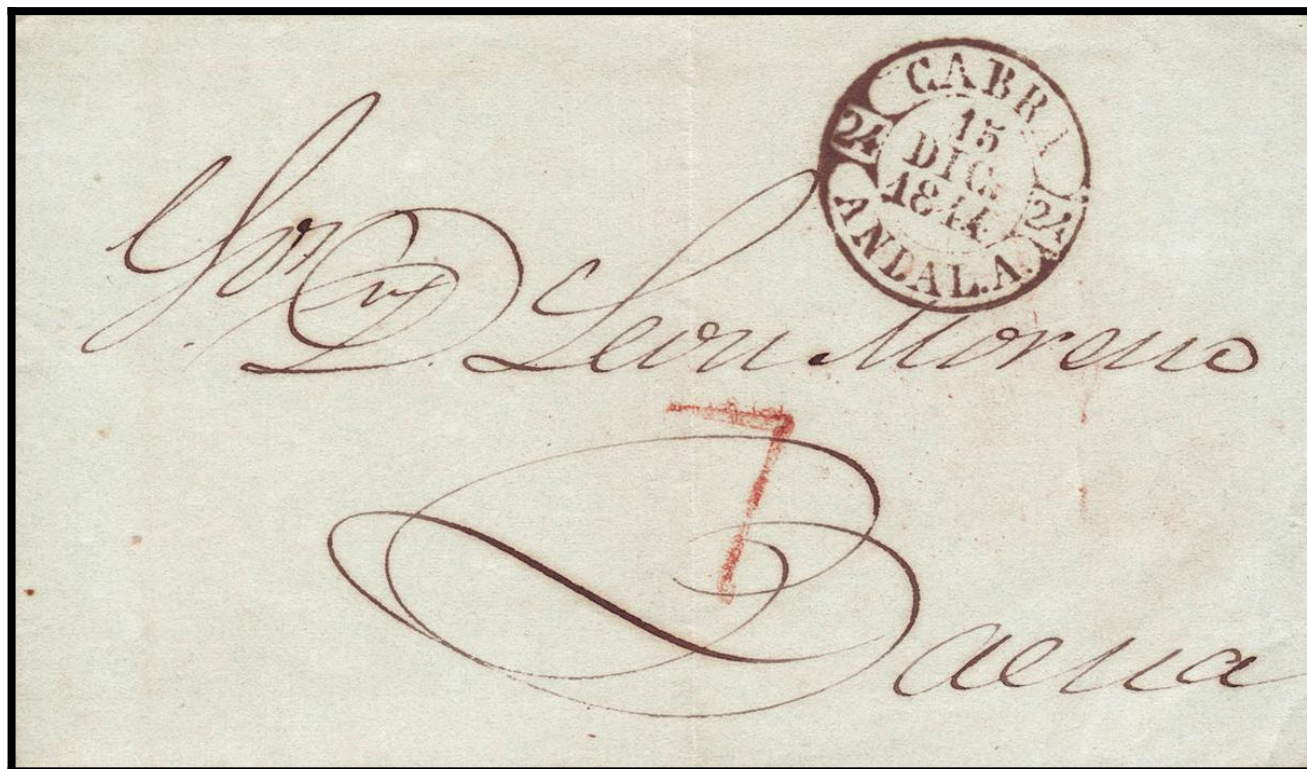 CABRA
24 15 24
DIC.
1844.
ANDAL.A.
Sor. Dn. Leon Moreno
7
Baena